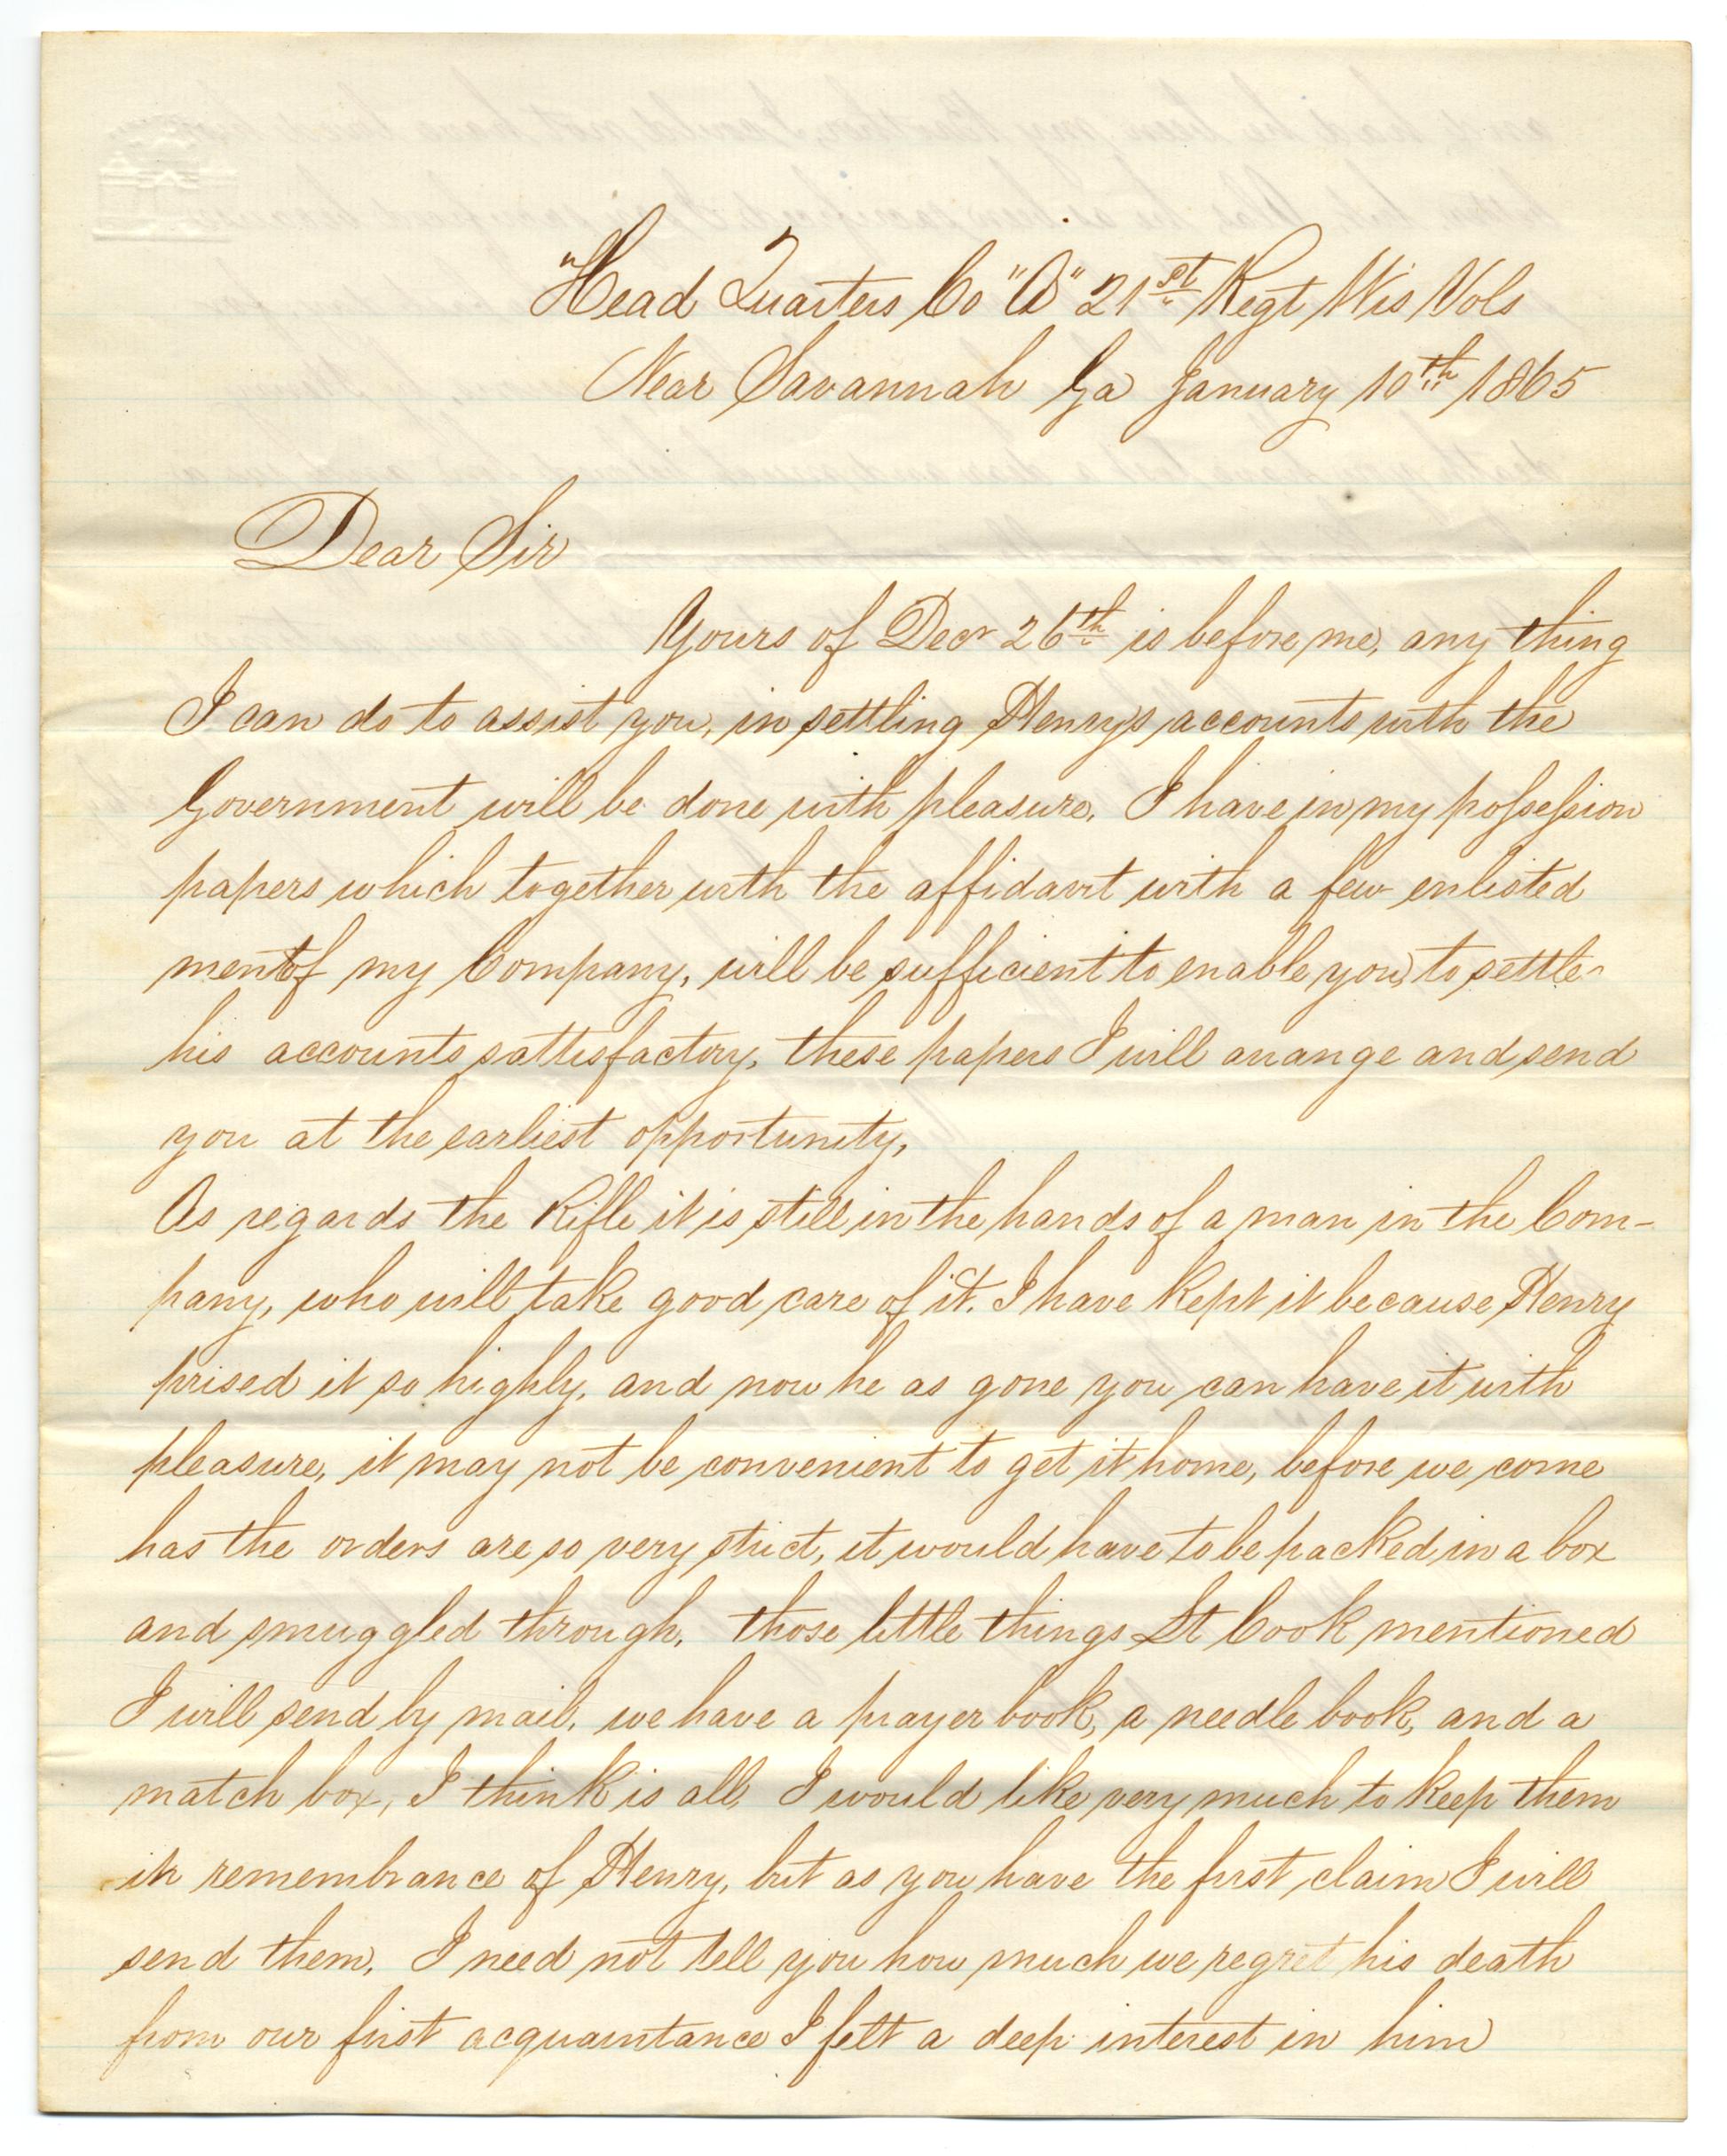 "Head Quarters Co "A" 21st Regt Wis Vols
Near Savannah Ga January 10th 1865
Dear Sir
Yours of Decr 26th is before me, any thing
I can do to assist you, in settling Henrys accounts with the
Government will be done with pleasure, I have in my possession
papers which together with the affidavit with a few enlisted
men of my Company, will be sufficient to enable you, to settle
his accounts sattisfactory, these papers I will arrange and send
you at the earliest opportunity,
As regards the Rifle it is still in the hands of a man in the Com-
pany, who will take good care of it. I have kept it because Henry
prised it so highly, and now he as gone you can have it with
pleasure, it may not be convenient to get it home, before we come
has the orders are so very strict, it would have to be packed in a box
and smuggled through, those little things Lt Cook mentioned
I will send by mail, we have a prayer book, a needle book, and a
match box, I think is all, I would like very much to keep them
in remembrance of Henry, but as you have the first claim I will
send them, I need not tell you how much we regret his death
from our first acquaintance I felt a deep interest in him